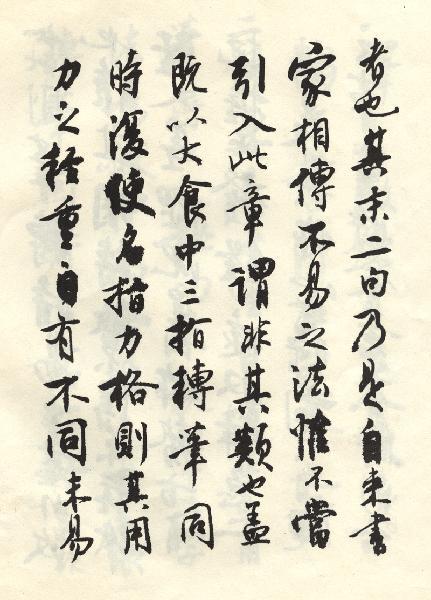 者也其末二句乃是自来書
家相傳不易之法惟不當
引入此章謂非其類也盖
既以大食中三指轉筆同
時復使名指力格則其用
力之輕重自有不同未易